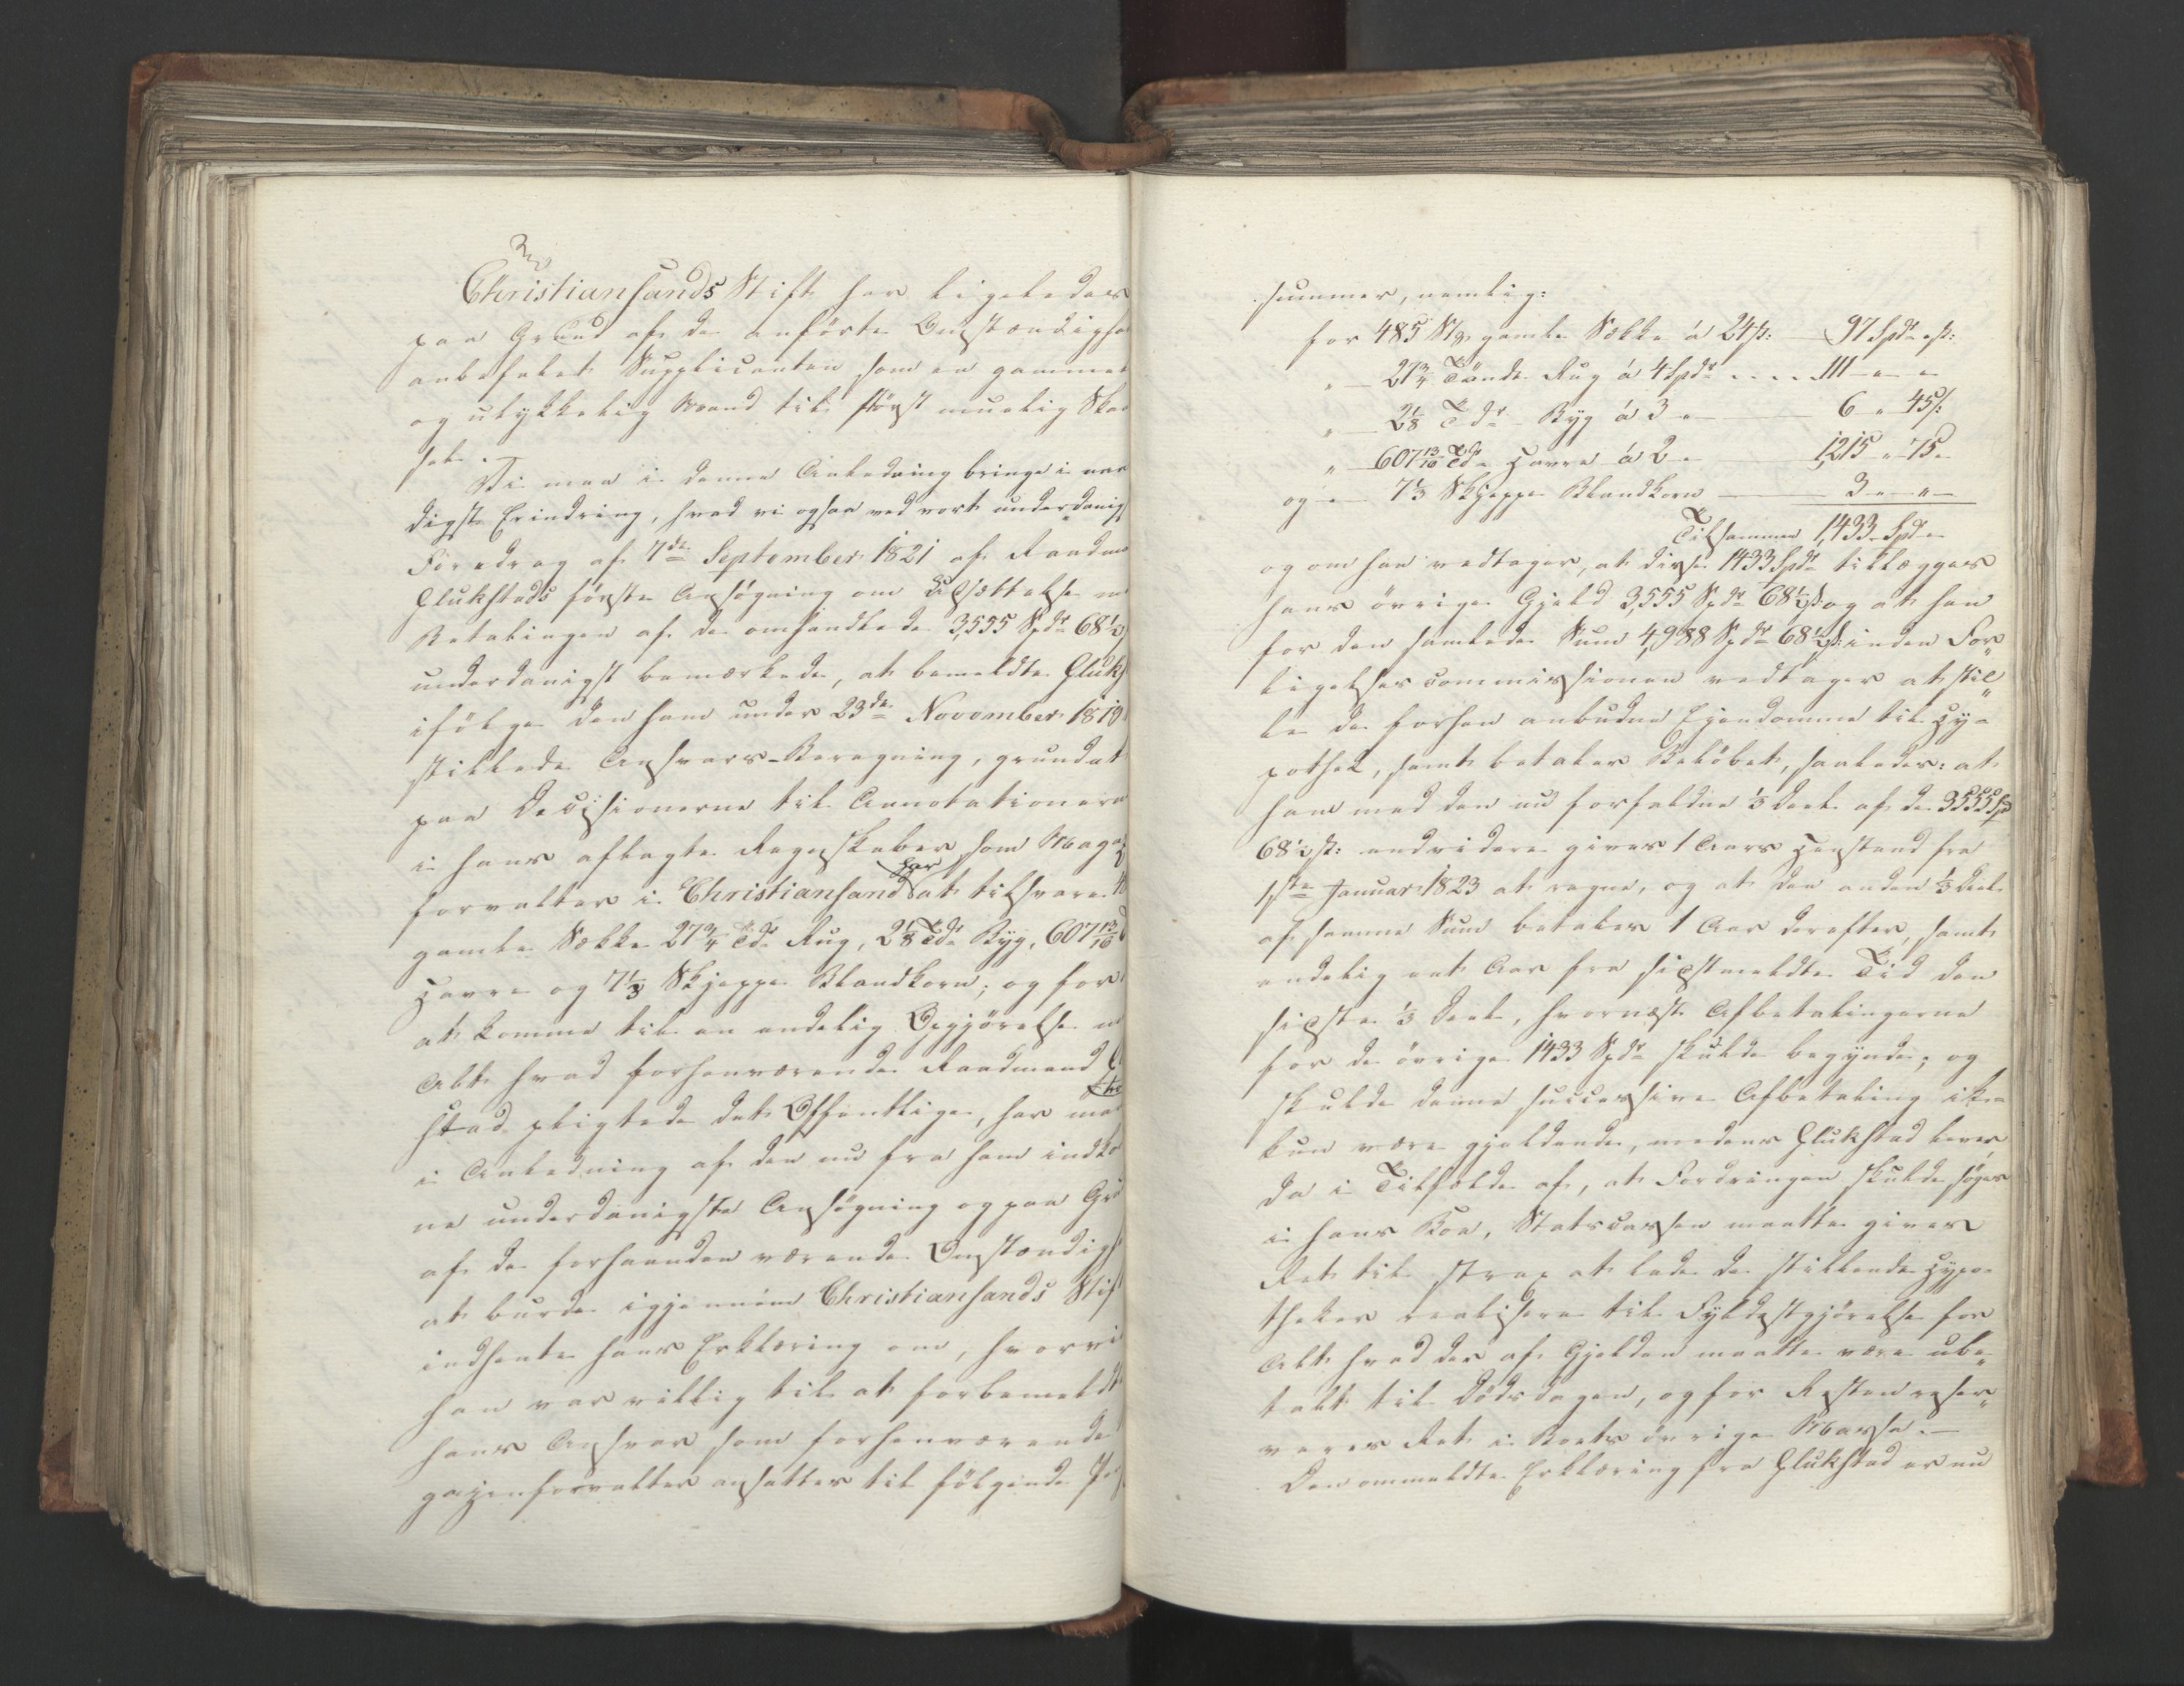 Christiansands Stift har ligeledes
paa Grund af de anførte Omstændighe
anbefalet Supplicanten som en gammel
og ulykkelig Mand til størst muelig Skaan
sel. –
Vi maa i denne Anledning bringe i naa
digst Erindring, hvad vi ogsaa ved vort underdanig
Foredrag af 7de September 1821 af Raadm
Glukstads første Ansøgning om Udsættelse m
Betalingen af de omhandlede 3,555 Spdr 68½
underdanigst bemærkede, at bemeldte Gluks
ifølge den ham under 23de November 1819
stillede Ansvars-Beregning, grundet
paa Decisionerne til Annotationern
i hans aflagte Regnskaber som Maga
forvalter i Christiansand har at tilsvare
gamle Sække 27¾ Tdr Rug, 2⅛ Tdr Byg, 607 13/16
Havre og 7⅓ Skjeppe Blandkorn; og for
at komme til en endelig Opgjørelse m
Alt hvad forhenværende Raadmand Gl
stad pligtede det Offentlige, har ma
i Anledning af den nu fra ham indko
ne underdanigste Ansøgning og paa Gru
af de forhaanden værende Omstændigh
at burde igjennem Christiansands Stift
indhente hans Erklæring om, hvorvi
han var villig til at forbemeldt
hans Ansvar som forhenværende
gazinforvalter ansattes til følgende
Summer, nemlig:
for 485 Stk gamle Sække á 24ß: 97 Spdr „ ß:
„ — 27¾ Tønde Rug á 4 Spdr .... 111 — „ —
„ — 2⅛ Tdr Byg á 3 „ — 6 „ 45ß:
„ — 607 13/16 Tdr Havre á 2 „ 1,215 „ 75 „
og „ — 7⅓ Skjeppe Blandkorn — 3 „ — „ —
Tilsammen 1,433 Spd „
og om han vedtager, at disse 1433 Spdr tillægges
hans øvrige Gjeld 3,555 Spdr 68½ß: og at han
for den samlede Sum 4,988 Spdr 68½ß: inden For„
ligelsescommissionen vedtager at stil„
le de forhen anbudne Ejendomme til Hy-
pothek, samt betaler Beløbet, saaledes: at
ham med den nu forfaldne ⅓ Deel af de 3555 Sp
68½ß: endvidere gives 1 Aars Henstand fra
1ste Januar 1823 at regne, og at den anden ⅓ Deel
af samme Sum betales 1 Aar derefter, samt
endelig eet Aar fra sidstmeldte Tid den
sidste ⅓ Deel, hvornæst Afbetalingerne
for de øvrige 1433 Spdr skulde begynde; og
skulde denne successive Afbetaling ik-
kun være gjeldende, medens Glukstad lever,
da i Tilfælde af, at Fordringen skulde søges
i hans Boe, Statscassen maatte gives
Ret til strax at lade de stillende Hypo-
theker realisere til Fyldestgjørelse for
Alt hvad der af Gjelden maatte være ube„
talt til Dødsdagen, og for Resten reser„
veres Ret i Boets øvrige Masse. —
Den ommeldte Erklæring fra Glukstad er nu